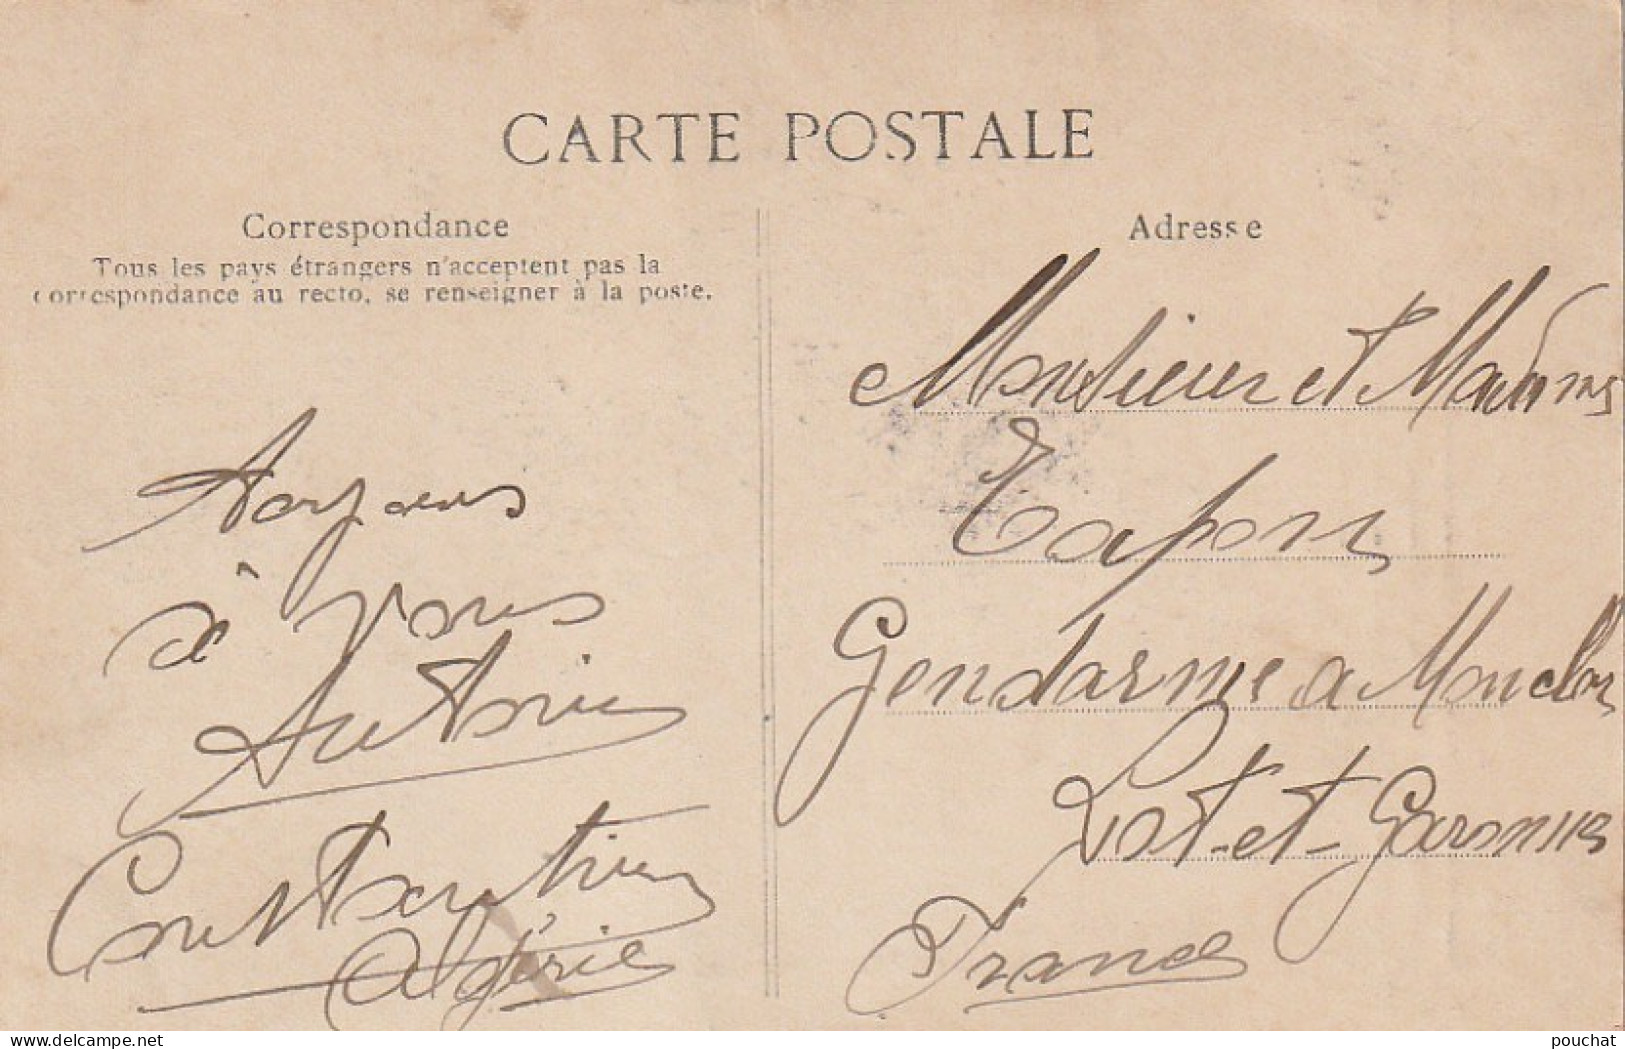 CARTE POSTALE
Correspondance
Tous les pays étrangers n'acceptent pas la
correspondance au recto, se renseigner à la poste.
à vous
Antonin
Constantine
Algérie
Adresse
Monsieur et Madame
Tapon
Gendarme a Monclar
Lot-et-Garonne
France
delcampe.net
pouchat